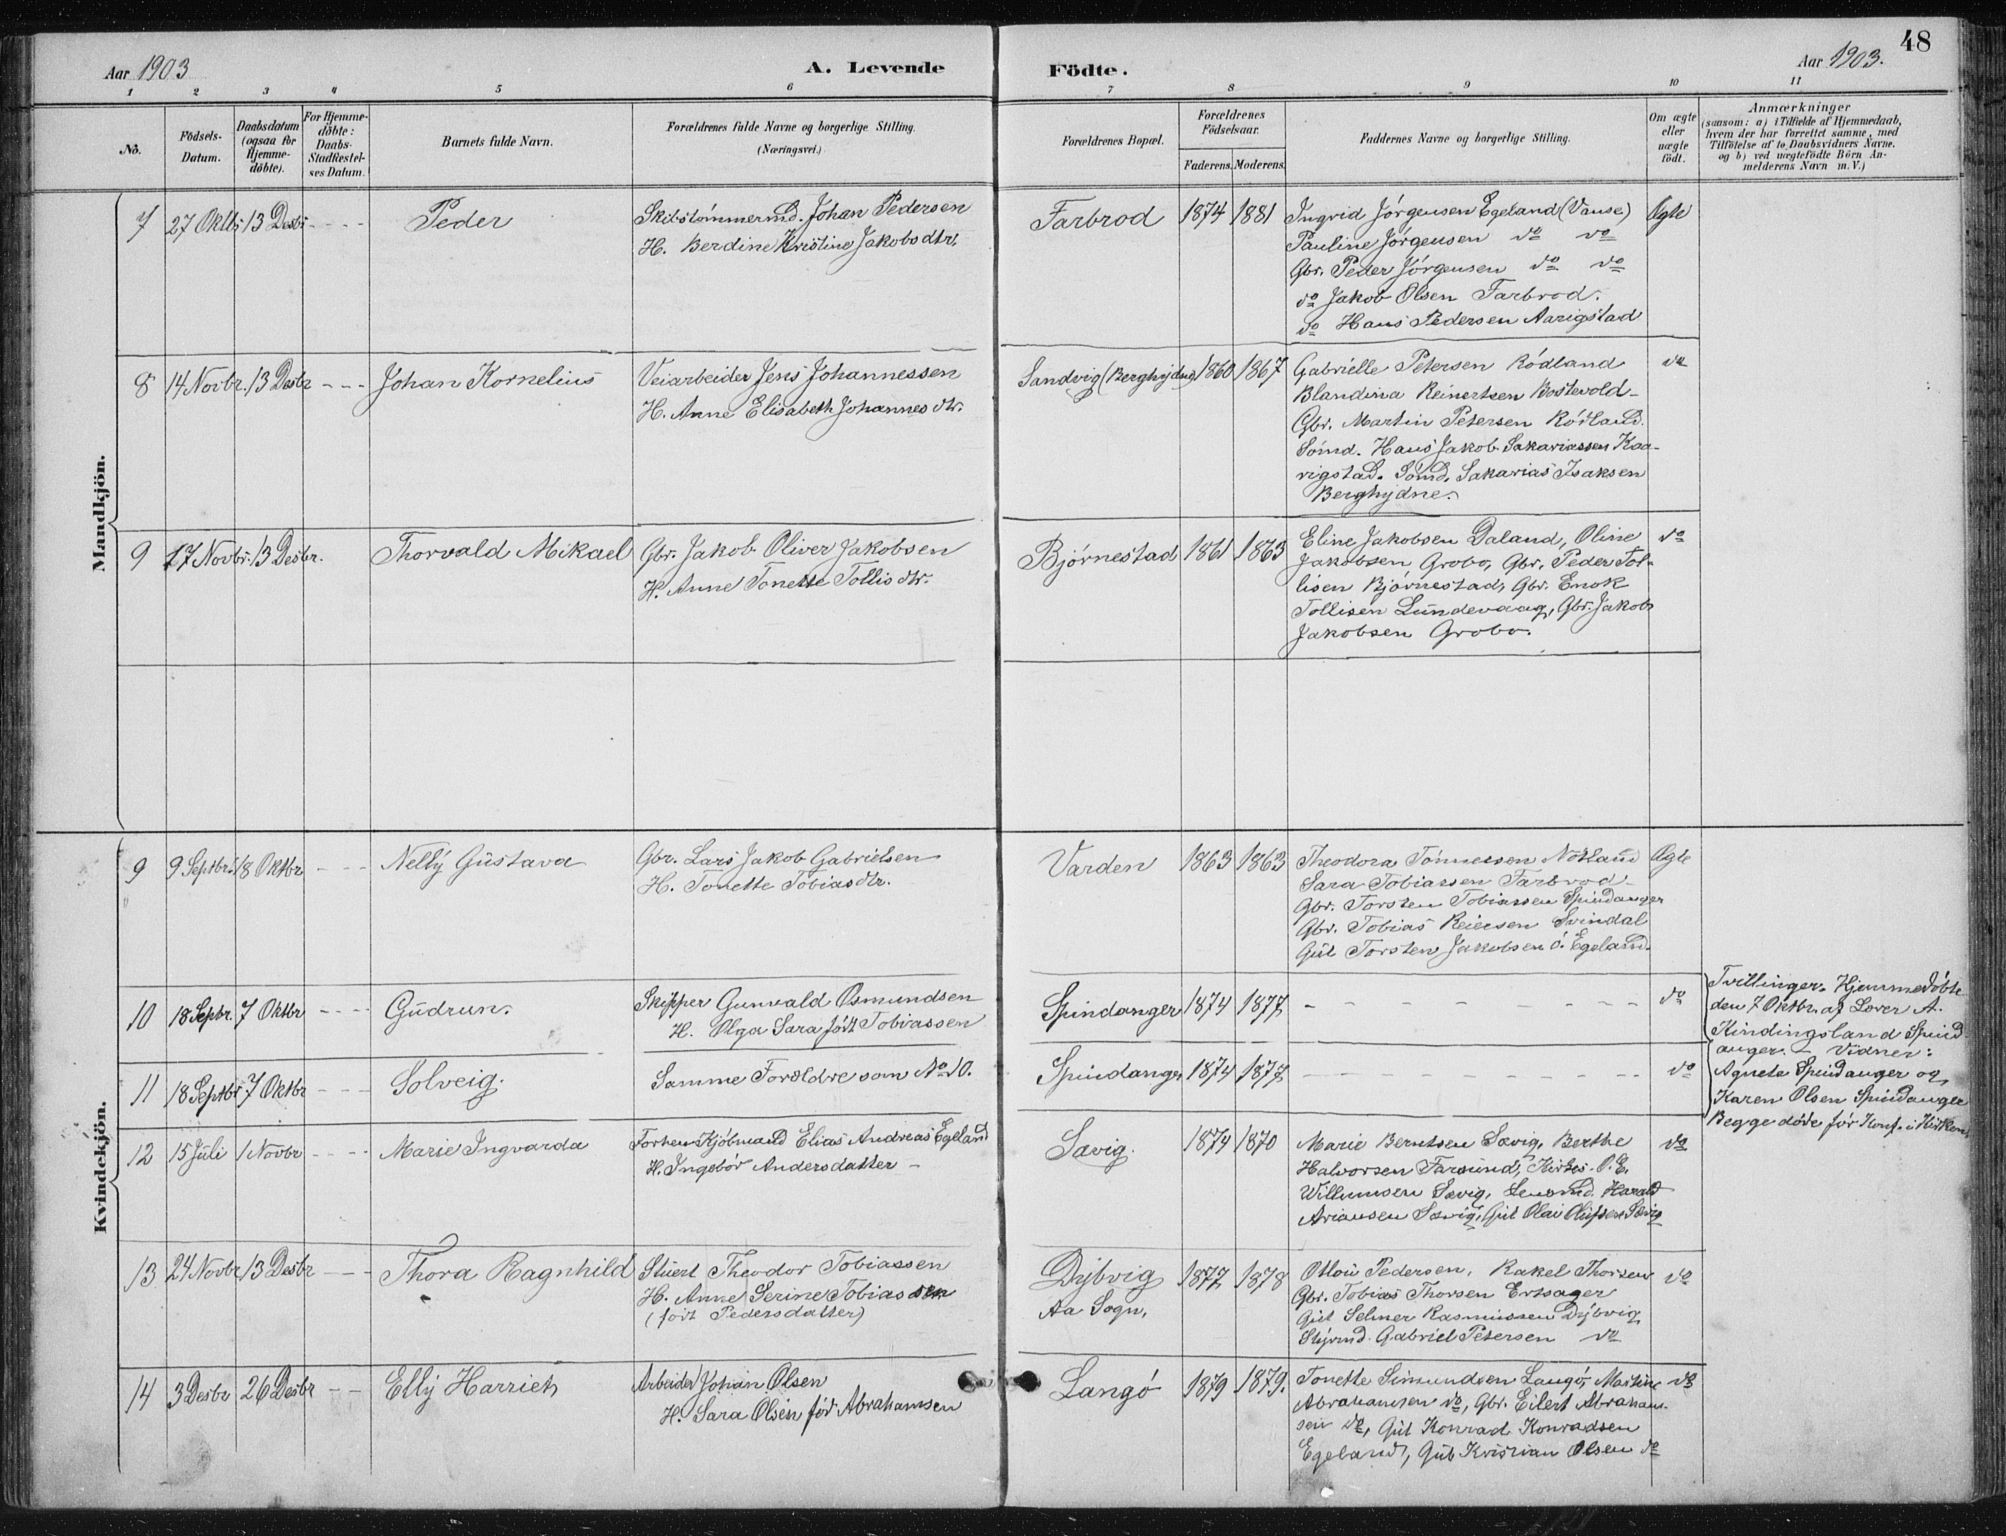 48
Aar 1903
A. Levende Födte.
Aar 1903.
1 2 3 4 5 6 7 8 9 10 11
No.
Födsels-
Datum.
Daabsdatum
(ogsaa for
Hjemme-
döbte).
For Hjemme-
döbte:
Daabs-
Stadfestel-
ses Datum.
Barnets fulde Navn.
Forældrenes fulde Navne og borgerlige Stilling.
(Næringsvei.)
Forældrenes Bopæl.
Forældrenes
Födselsaar.
Faderens. Moderens.
Faddernes Navne og borgerlige Stilling.
Om ægte
eller
uægte
födt.
Anmærkninger
(saasom: a) i Tilfælde af Hjemmedaab,
hvem der har forrettet samme, med
Tilföielse af to Daabsvidners Navne.
og b) ved uægtefödte Börn An-
melderens Navn m. V.)
Mandkjön.
7 27 Oktbr 13 Desbr - - - - Peder
Skibstömmermd. Johan Pedersen
H. Berdine Kristine Jakobsdtr.
Farbrod 1874 1881
Ingrid Jörgensen Egeland (Vanse)
Pauline Jörgensen do do
Gbr. Peder Jörgensen do do
do Jakob Olsen Farbrod.
do Hans Pedersen Aarigstad
Ægte
8 14 Novbr. 13 Desbr - - - Johan Kornelius
Veiarbeider Jens Johannessen
H. Anne Elisabeth Johannesdtr.
Sandvig (Berghydne) 1860 1867
Gabrielle Petersen Rödland
Blandina Reinertsen Bostevold
Gbr. Martin Petersen Rödland.
Sömd. Hans Jakob Sakariassen Kaa-
rigstad. Sömd. Sakarias Isaksen
Berghydne.
do
9 17 Novbr. 13 Desbr. Thorvald Mikael
Gbr. Jakob Oliver Jakobsen
H. Anne Tonette Tollisdtr.
Björnestad 1861 1863
Eline Jakobsen Daland, Oline
Jakobsen Grobo, Gbr. Peder Tol-
lisen Björnestad, Gbr. Enok
Tollisen Lundevaag, Gbr. Jakob
Jakobsen Grobo.
do
Kvindekjön.
9 9 Septbr. 18 Oktbr - - - Nelly Gustava
Gbr. Lars Jakob Gabrielsen
H. Tonette Tobiasdtr.
Varden 1863 1863
Theodora Tönnessen Nötland
Sara Tobiassen Farbrod
Gbr. Torsten Tobiassen Spindanger
Gbr. Tobias Reiersen Svindal
Gut Torsten Jakobsen ö. Egeland.
Ægte
10 18 Sepbr. 7 Oktbr - - - - Gudrun.
Skipper Gunvald Osmundsen
H. Olga Sara født Tobiassen
Spindanger 1874 1877 - - - - - - - - - do
Tvillinger. Hjemmedöbte
den 7 Oktbr. af Lærer A.
Kindingsland Spind-
anger. - Vidner:
Agnete Spindanger og
Karen Olsen Spindanger
Begge döde för Konf. i Kirken.
11 18 Septbr 7 Oktbr - - - Solveig.
Samme Forældre som No 10.
Spindanger 1874 1877 - - - - - - - - - do
12 15 Juli 1 Novbr - - - - Marie Ingvarda
Forhen Kjöbmand Elias Andreas Egeland
H. Ingebor Andersdatter
Sævig. 1874 1870
Marie Berntsen Sævig, Berthe
Halvorsen Farsund, Kirkes. P. E.
Willumsen Sævig, Lensmd. Harald
Ariansen Sævig, Gut Olai Olufsen Sævig
do
13 24 Novbr 13 Desbr - - - Thora Ragnhild
Stuert Theodor Tobiassen
H. Anne Serine Tobiassen
(født Pedersdatter)
Dybvig
Aa Sogn.
1877 1878
Pedersen, Rakel Thorsen
Gbr. Tobias Thorsen Ertsager
Gut Selmer Rasmussen Dybvig
Styrmd. Gabriel Petersen do
do
14 3 Desbr 26 Desbr - - Elly Harriet
Arbeider Johan Olsen
H. Sara Olsen föd Abrahamsen
Langö 1879 1879.
Tonette Simundsen Langö, Martine
Abrahamsen do, Gbr. Eilert Abraham-
sen do, Gut Konrad Konradsen
Egeland, Gut Kristian Olsen do
do